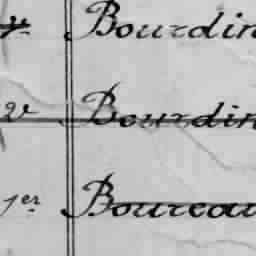 v Bourdin
v Bourdin
1er Boureau